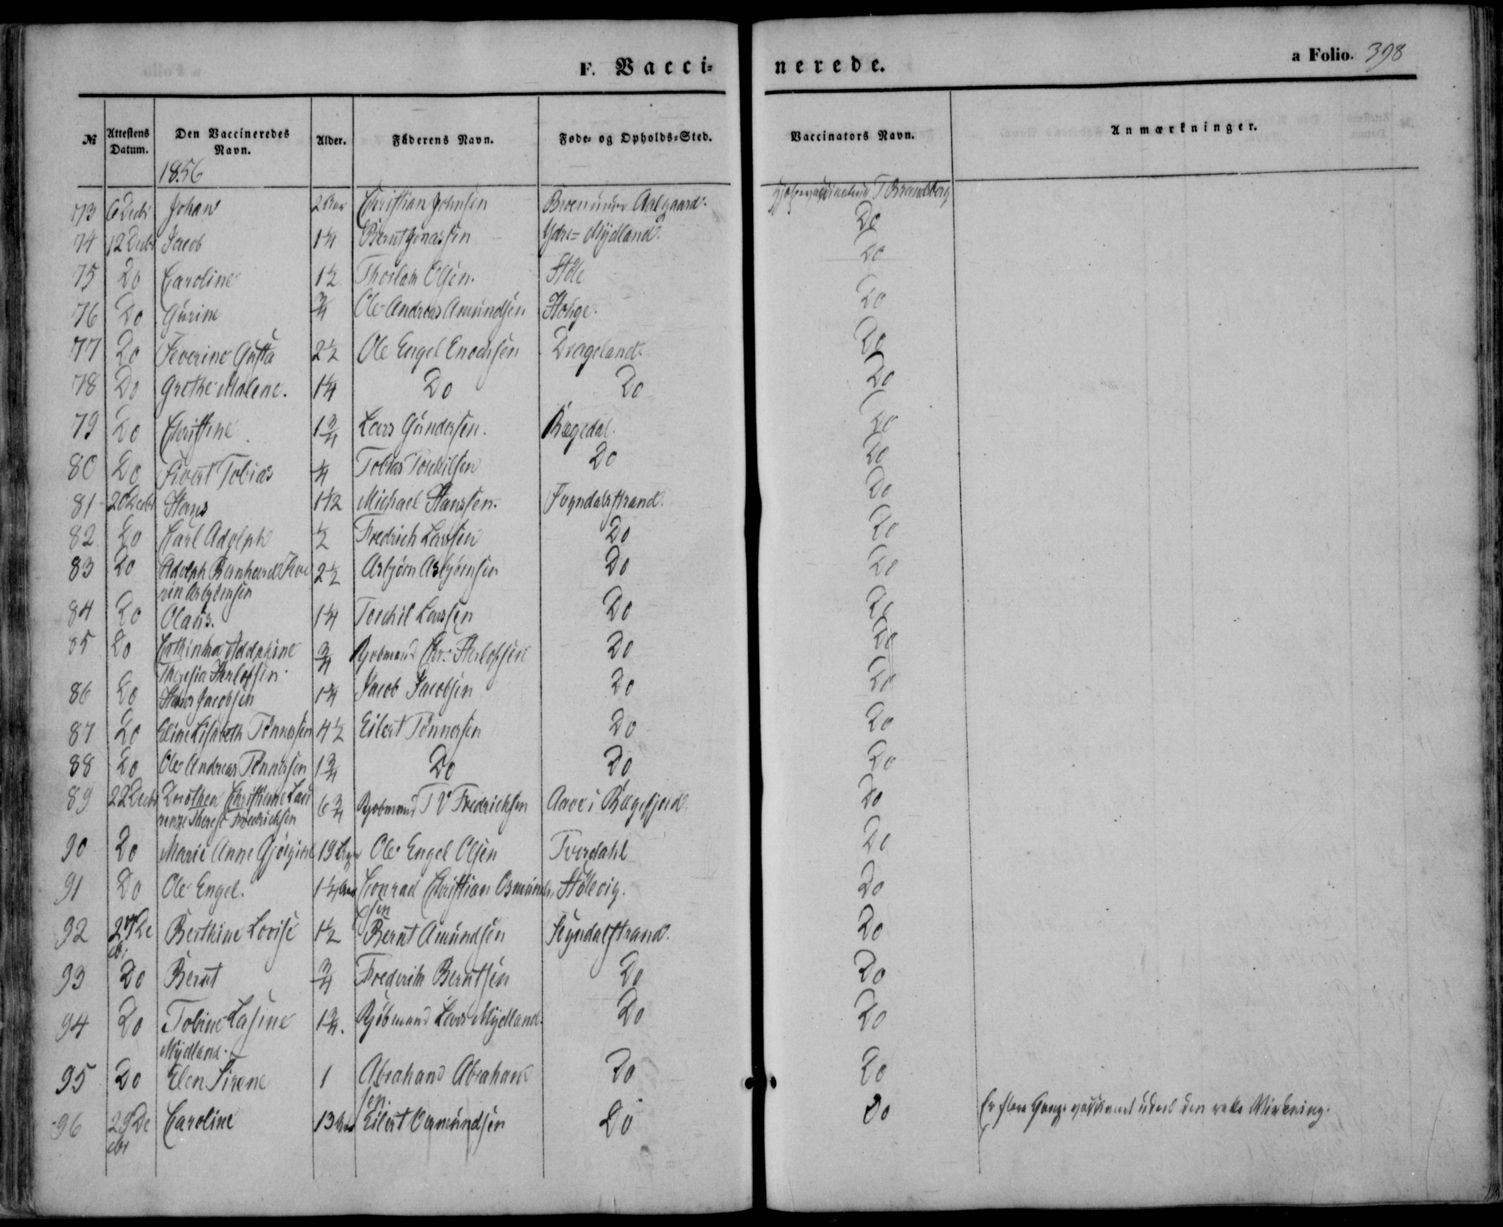 F. Vacci-
nerede.
a Folio. 398
№ Attestens Datum. Den Vaccineredes Navn. Alder. Faderens Navn. Føde- og Opholds-Sted. Vaccinators Navn. Anmærkninger.
1856
73 6 Decbr Johan 2 Christian Johnsen Aalgaard.
74 12 Decbr Jacob 1¼ Bernt Jonassen Ydre-Mydland. Do
75 Do Caroline 1½ Olsen. Støle Do
76 Do Gurine ¾ Ole Andreas Amundsen Houge. Do
77 Do Severine Gusta 2½ Ole Engel Enochsen Drageland. Do
78 Do Grethe Malene. 1¼ Do Do Do
79 Do Christine 1¾ Lars Gundersen. Bøgedal. Do
80 Do Sivert Tobias ¼ Tobias Torkilsen Do Do
81 20 Decbr Hans 1½ Michael Hanssen. Sogndalstrand. Do
82 Do Carl Adolph ½ Fredrich Larsen Do Do
83 Do Adolph Bernhard Seve 2½ Asbjørn Asbjørnsen Do Do
rin Asbjørnsen
84 Do Olaus. 1¼ Torchil Larssen Do Do
85 Do Cathinka Adolphine ¾ Kjøbmand Chr. Herlofsen Do Do
Theresia Herlofsen.
86 Do Hans Jacobsen 1¾ Jacob Jacobsen Do Do
87 Do Eline Lisabeth Tønnesen 4½ Eilert Tønnesen Do Do
88 Do Ole Andreas Tønnesen 1¾ Do Do Do
89 22 Decbr Dorthea Christine Lau 6¾ Kjøbmand T V Fredrichsen Aaroe i Bøgefjord. Do
renze Therese Fredrichsen
90 Do Marie Anne Gjørgine 19 Ole Engel Olsen Tverdahl Do
91 Do Ole Engel. 1½ Conrad Christian Osmund Stølevig. Do
sen
92 27 De Berthine Lovise 1½ Bernt Amundsen Sogndalstrand. Do
cbr
93 Do Bernt ¾ Frederik Berntsen Do Do
94 Do Tobine Lasine 1¾. Kjøbmand Lars Mydland. Do Do
Mydland.
95 Do Elen Sirene 1 Abraham Abraham Do Do
sen.
96 29 De Caroline 13 Eilert Osmundsen Do Do Er flere Gange vaccineret uden den rette Virkning.
cbr